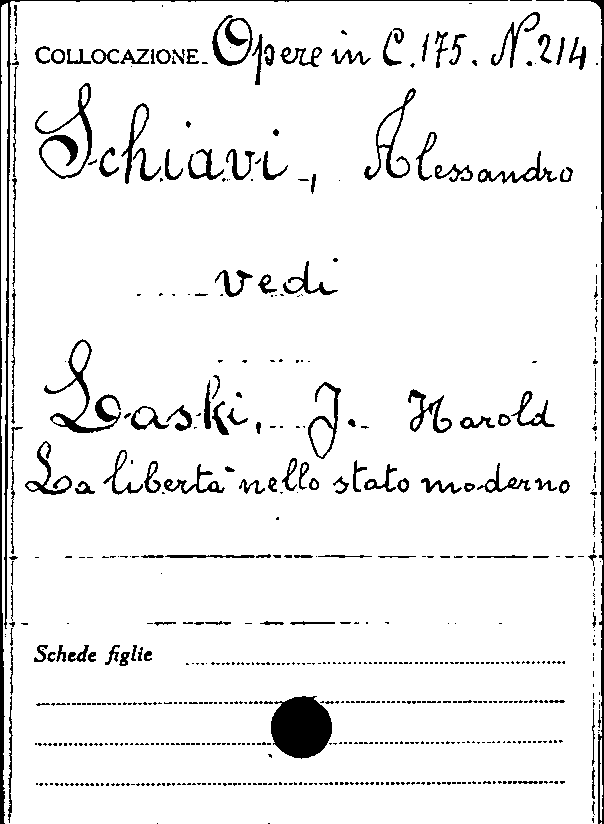 COLLOCAZIONE Opere in C.175. N.214
Schiavi, Alessandro
vedi
Laski, J. Harold
La libertà nello stato moderno
Schede figlie